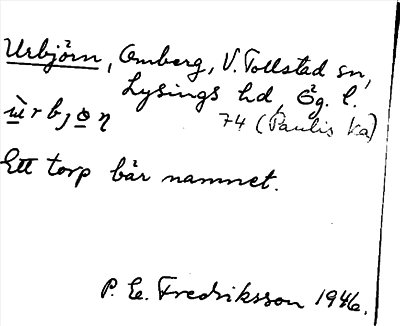 Urbjörn, Omberg, V. Tollstad sn,
Lysings hd, Ög. l.
ɯ̀rbjo̲ŋ 74 (Paulis Ka)
Ett torp bär namnet.
P. E. Fredriksson 1946.